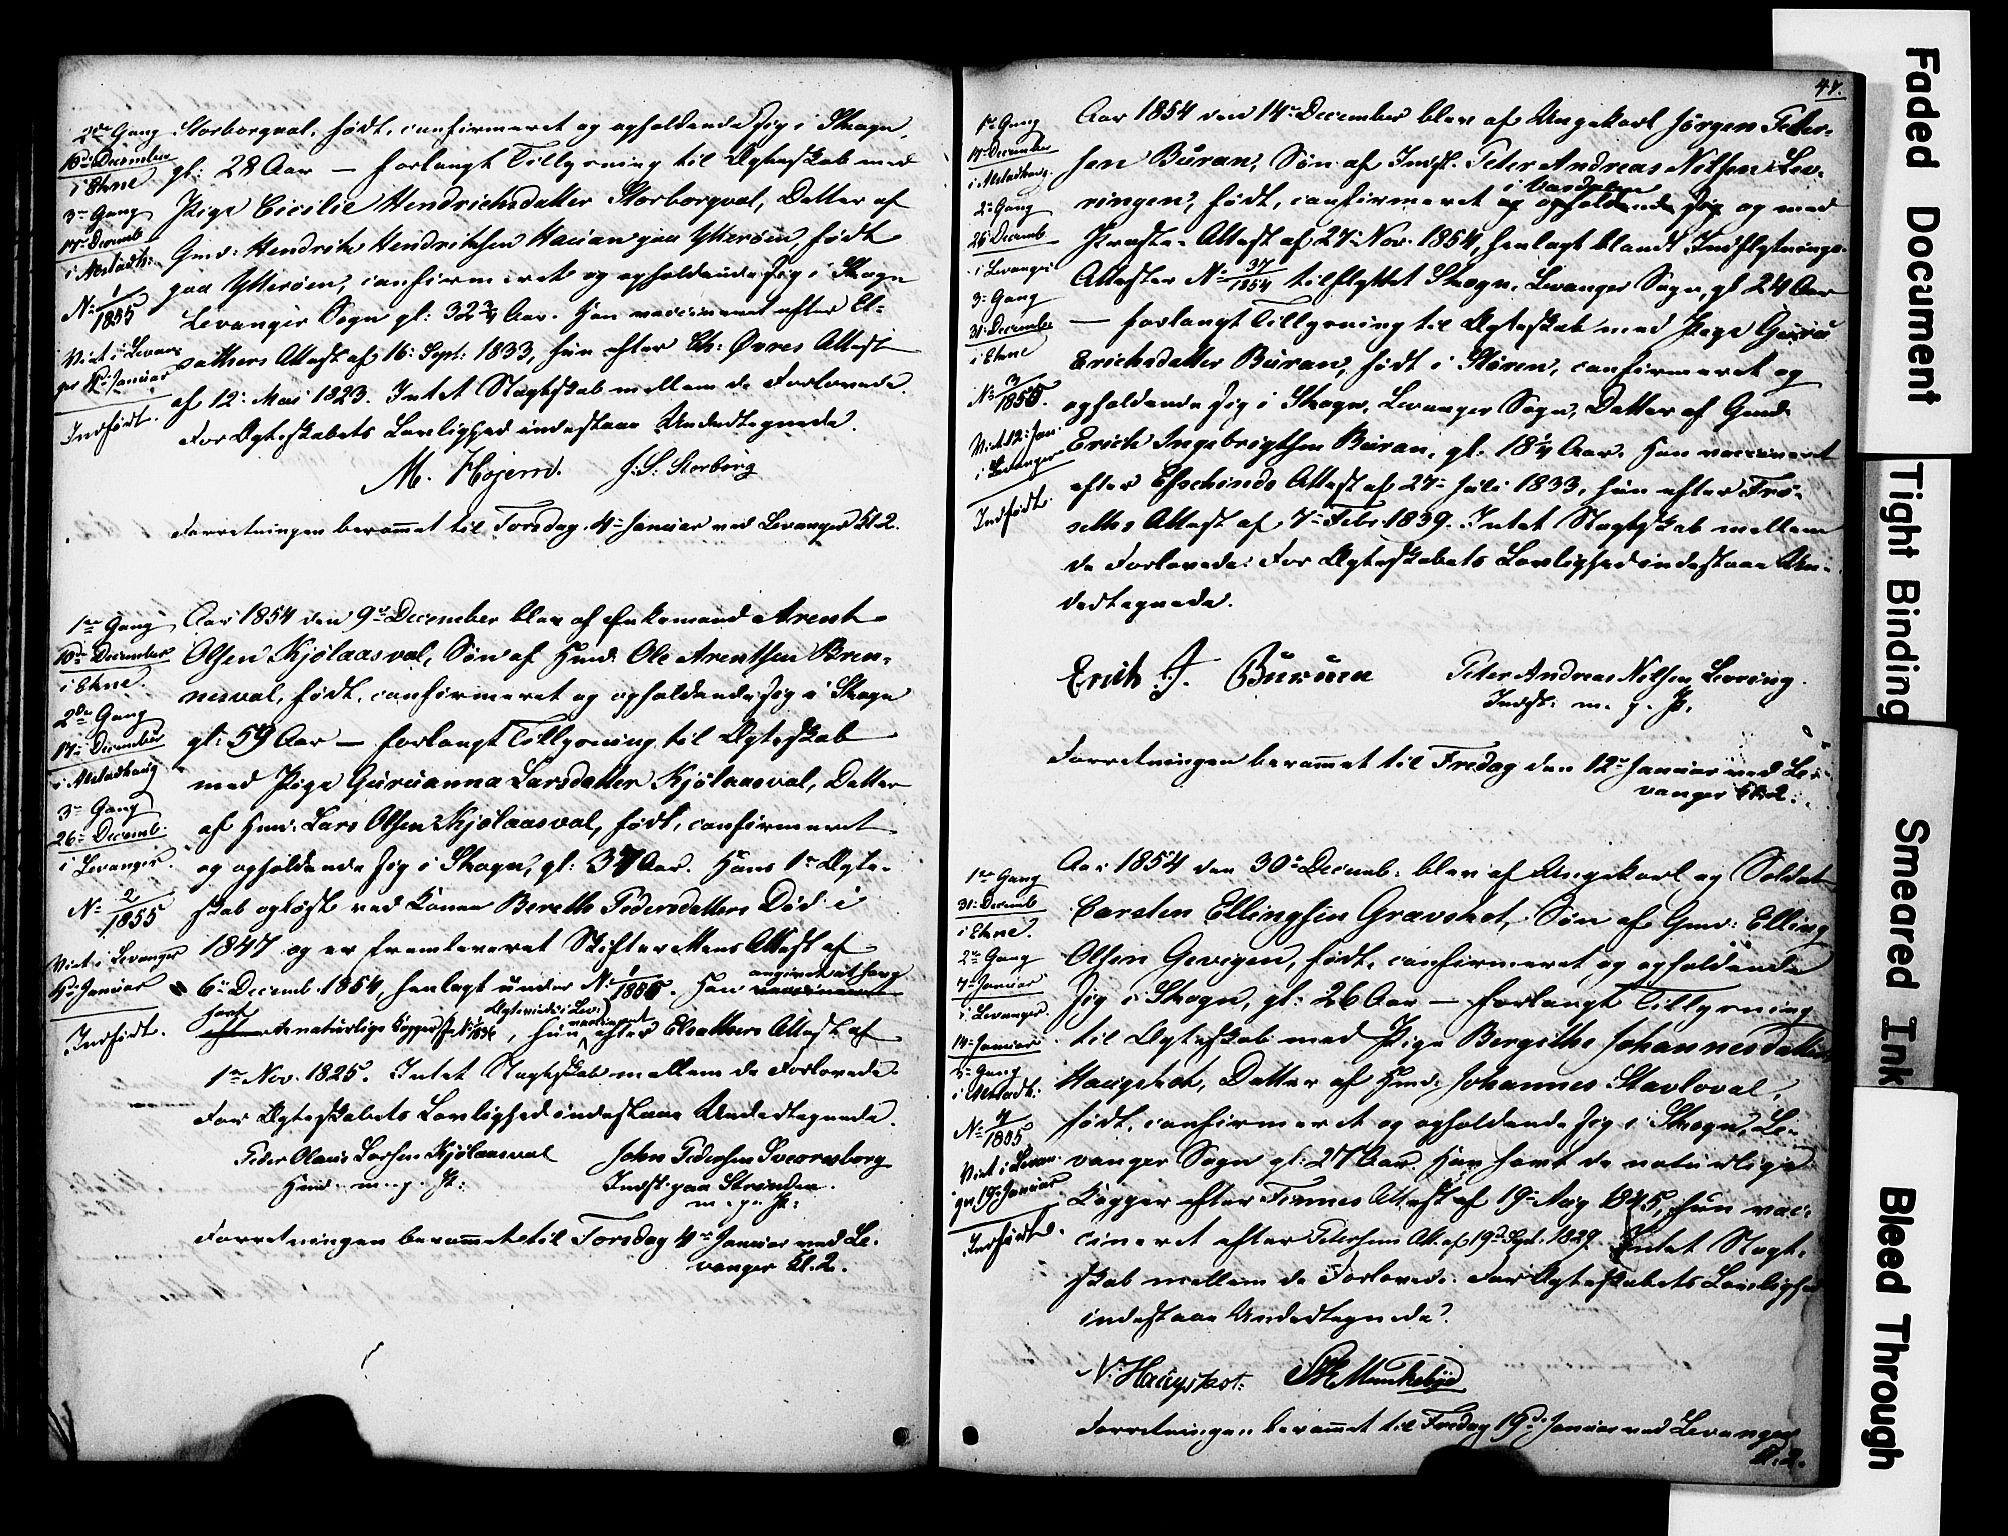 2de Gang
10de December
i Ekne
3die Gang
17de Decemb.
i Alstadh:
No 1/1855
Viet i Levan-
ger 4de Januar
Indført.
Storborgval, født, confirmeret og opholdende sig i Skogn,
gl: 28 Aar — forlangt Tillysning til Ægteskab med
Pige Cicilie Hendrichsdatter Storborgval, Datter af
Gmd: Hendrik Hendriksen paa Ytterøen, født
paa Ytterøen, confirmeret og opholdende sig i Skogn
Levanger Sogn gl: 32 3/4 Aar. Han vaccineret efter El-
sathers Attest af 16: Sept: 1833, hun efter Ch: Øvres Attest
af 12: Mai 1823. Intet Slægtskab mellem de Forlovede.
For Ægteskabets Lovlighed indestaae Undertegnede.
M. Hojem. J. S. Storborg
Forretningen berammet til Torsdag 4de Januar ved Levanger Kl. 2.
1ste Gang
10de December
i Ekne.
2den Gang
17de December
i Alstadhaug
3die Gang
26de Decemb.
i Levanger.
No 2/1855
Viet i Levanger
4de Januar
Indført.
Aar 1854 den 9de December blev af Enkemand Arent
Olsen Kjølaasval, Søn af Hmd: Ole Arentsen Bren-
nesval, født, confirmeret og opholdende sig i Skogn
gl: 59 Aar — forlangt Tillysning til Ægteskab
med Pige Guruanna Larsdatter Kjølaasval, Datter
af Hmd: Lars Olsen Kjølaasval, født, confirmeret
og opholdende sig i Skogn, gl: 37 Aar. Hans 1ste Ægte-
skab opløst ved Konen Bereth Pedersdatters Død i
1847 og er fremleveret Skifterettens Attest af
6te Decemb. 1854, henlagt under No 1/1855. Han angivet at have
havt de naturlige Kopper, hun vaccineret efter Elsathers Attest af
1ste Nov. 1825. Intet Slægtskab mellem de Forlovede.
For Ægteskabets Lovlighed indestaae Undertegnede.
Peder Olaus Larsen Kjølaasval John Pedersen Sverresborg
Hmd. m. p. P: Indst: paa Stranden.
m. p. P:
Forretningen berammet til Torsdag 4de Januar ved Le-
vanger Kl. 2.
47.
1ste Gang
17de December
i Alstadhaug.
2den Gang
26de Decemb
i Levanger
3die Gang
31te December
i Ekne
No 3/1855.
Viet 12: Jan.
i Levanger
Indført.
Aar 1854 den 14de December blev af Ungekarl Jørgen Peter-
sen Buran, Søn af Indst: Peter Andreas Nilsen Lev-
ringen, født, confirmeret i Værdalen og opholdende sig og med
Præste-Attest af 27: Nov: 1854, henlagt blandt Indflytnings-
Attester No 37/1854 tilflyttet Skogn, Levanger Sogn, gl 24 Aar
— forlangt Tillysning til Ægteskab med Pige Guru
Erichsdatter Buran, født i Støren, confirmeret og
opholdende sig i Skogn, Levanger Sogn, Datter af Gmd:
Erich Ingebrigtsen Buran, gl: 18 1/4 Aar. Han vaccineret
efter Eschinds Attest af 27de Juli 1833, hun efter Frø-
seths Attest af 7de Febr 1839. Intet Slægtskab mellem
de Forlovede. For Ægteskabets Lovlighed indestaae Un-
dertegnede.
Erich J. Buruen Peter Andreas Nilsen Levring.
Indst: m. p. P.
Forretningen berammet til Fredag den 12te Januar ved Le-
vanger Kl: 2.
1ste Gang
31te Decemb
i Ekne.
2den Gang
7de Januar
i Levanger.
14de Januar
3die Gang
i Alstadh:
No 4/1855
Viet i Levan-
ger 19de Januar
Indført.
Aar 1854 den 30te Decemb: blev af Ungekarl og Soldat
Carsten Ellingsen Gravskot, Søn af Gmd: Elling
Olsen Gevigen, født, confirmeret og opholdende
sig i Skogn, gl: 26 Aar — forlangt Tillysning
til Ægteskab med Pige Bergithe Johannesdatter
Haugskot, Datter af Hmd: Johannes Stavloval,
født, confirmeret og opholdende sig i Skogn, Le-
vanger Sogn gl: 27 Aar. Han havt de naturlige
Kopper efter Finnes Attest af 19de Aug 1845, hun vac-
cineret efter Petersens Att. af 19de Sept. 1829. Intet Slægt-
skab mellem de Forlovede. For Ægteskabets Lovlighed
indestaae Undertegnede.
N: Haugskot. Munkebye
Forretningen berammet til Fredag 19de Januar ved Levanger
Kl. 2.
Faded Document
Tight Binding
Smeared Ink
Bleed Through